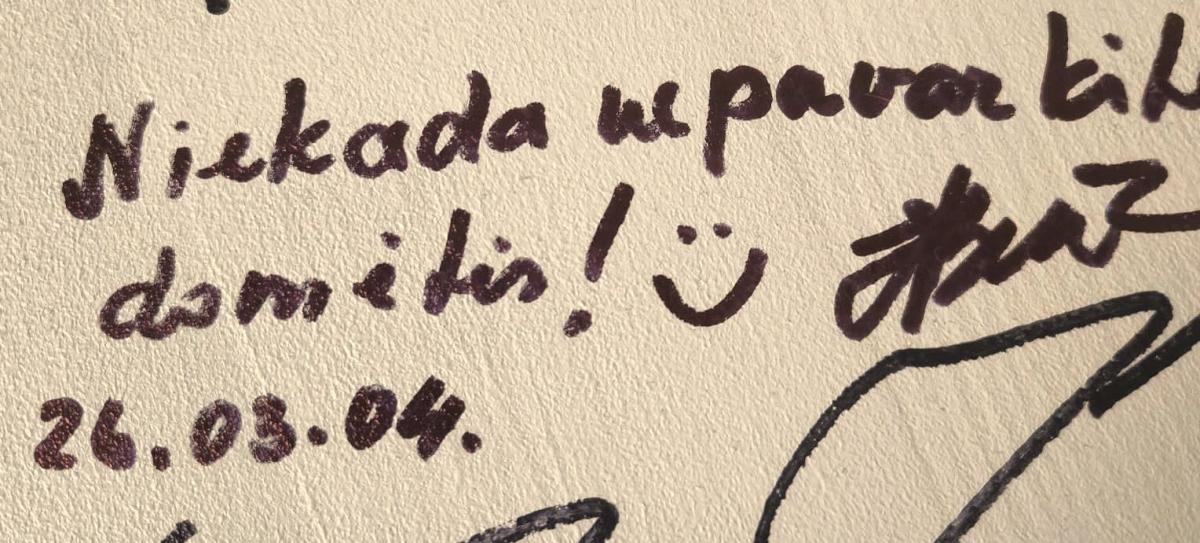 Niekada nepavarkit
domėtis! :)
26.03.04.